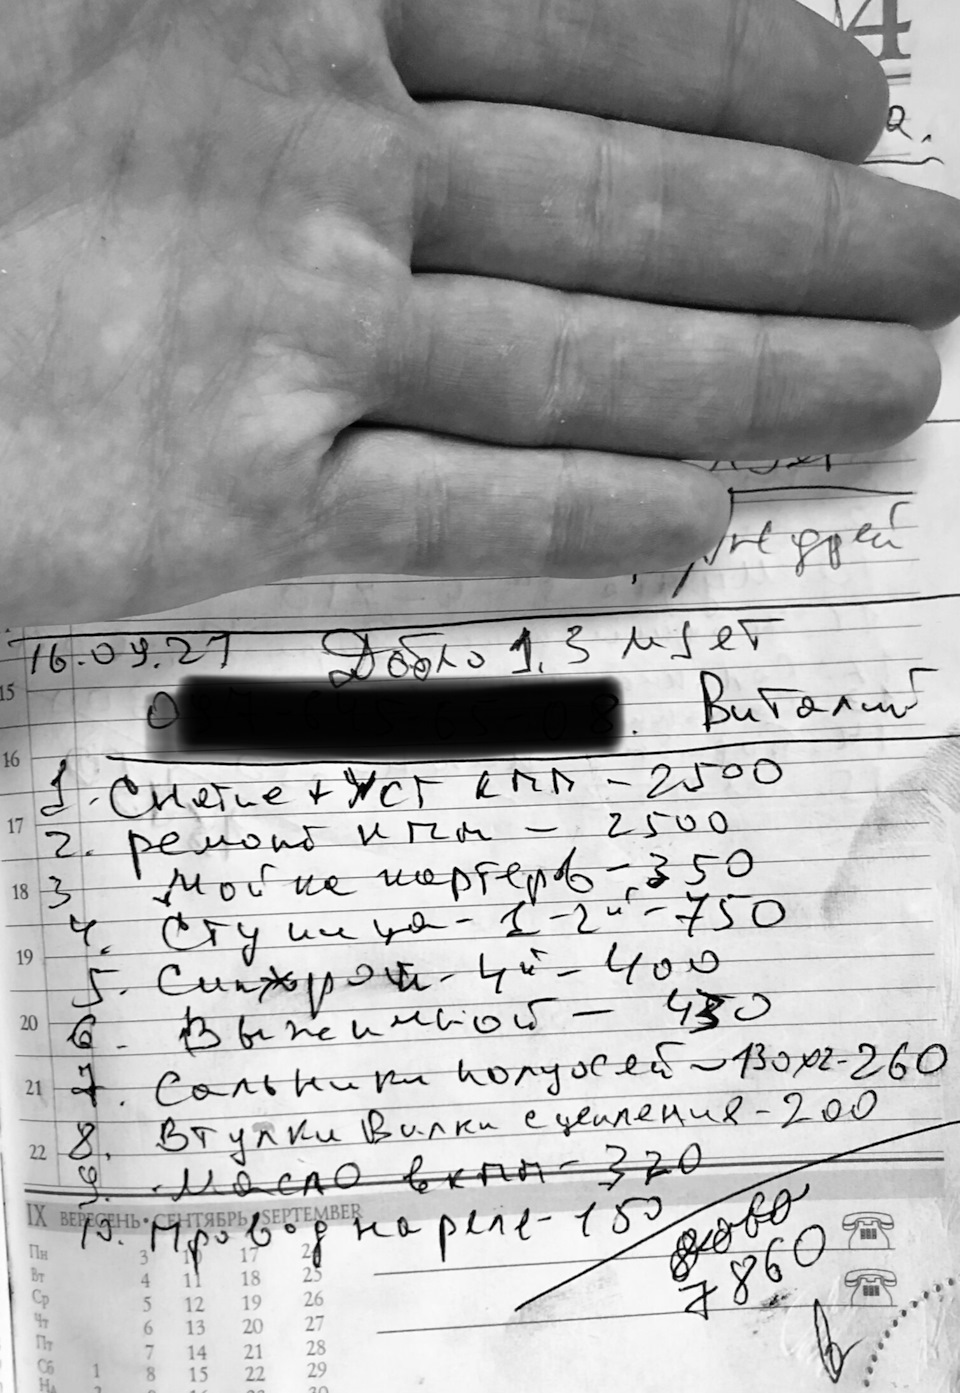 4
а.
ждей
16.09.21 Добло 1.3 мjет
Виталий
15
16
1. Снятие + Уст кпп - 2500
17
2. ремонт кпп - 2500
18
3 Мойка картеров - 350
4. Ступица - 1-2й - 750
19
5. Синхрон - 4й - 400
20
6. Выжимной - 430
21
7. Сальники полуосей - 130х2 - 260
8. Втулки Вилки сцепления - 200
22
9. Масло в кпп - 320
IX ВЕРЕСЕНЬ • СЕНТЯБРЬ • SEPTEMBER
10. Провод на реле - 150
7860
Пн 3 10 17 24
Вт 4 11 18 25
Ср 5 12 19 26
Чт 6 13 20 27
Пт 7 14 21 28
Сб 1 8 15 22 29